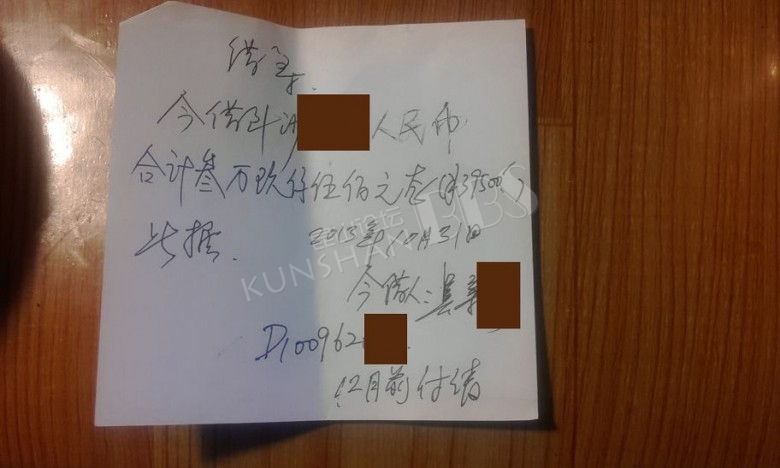 借条
今借到
人民币
合计叁万玖仟伍佰元整(¥39500)
此据. 2013年10月31日
今借人:
D100962
12月前付清
昆山论坛
KUNSHAN BBS